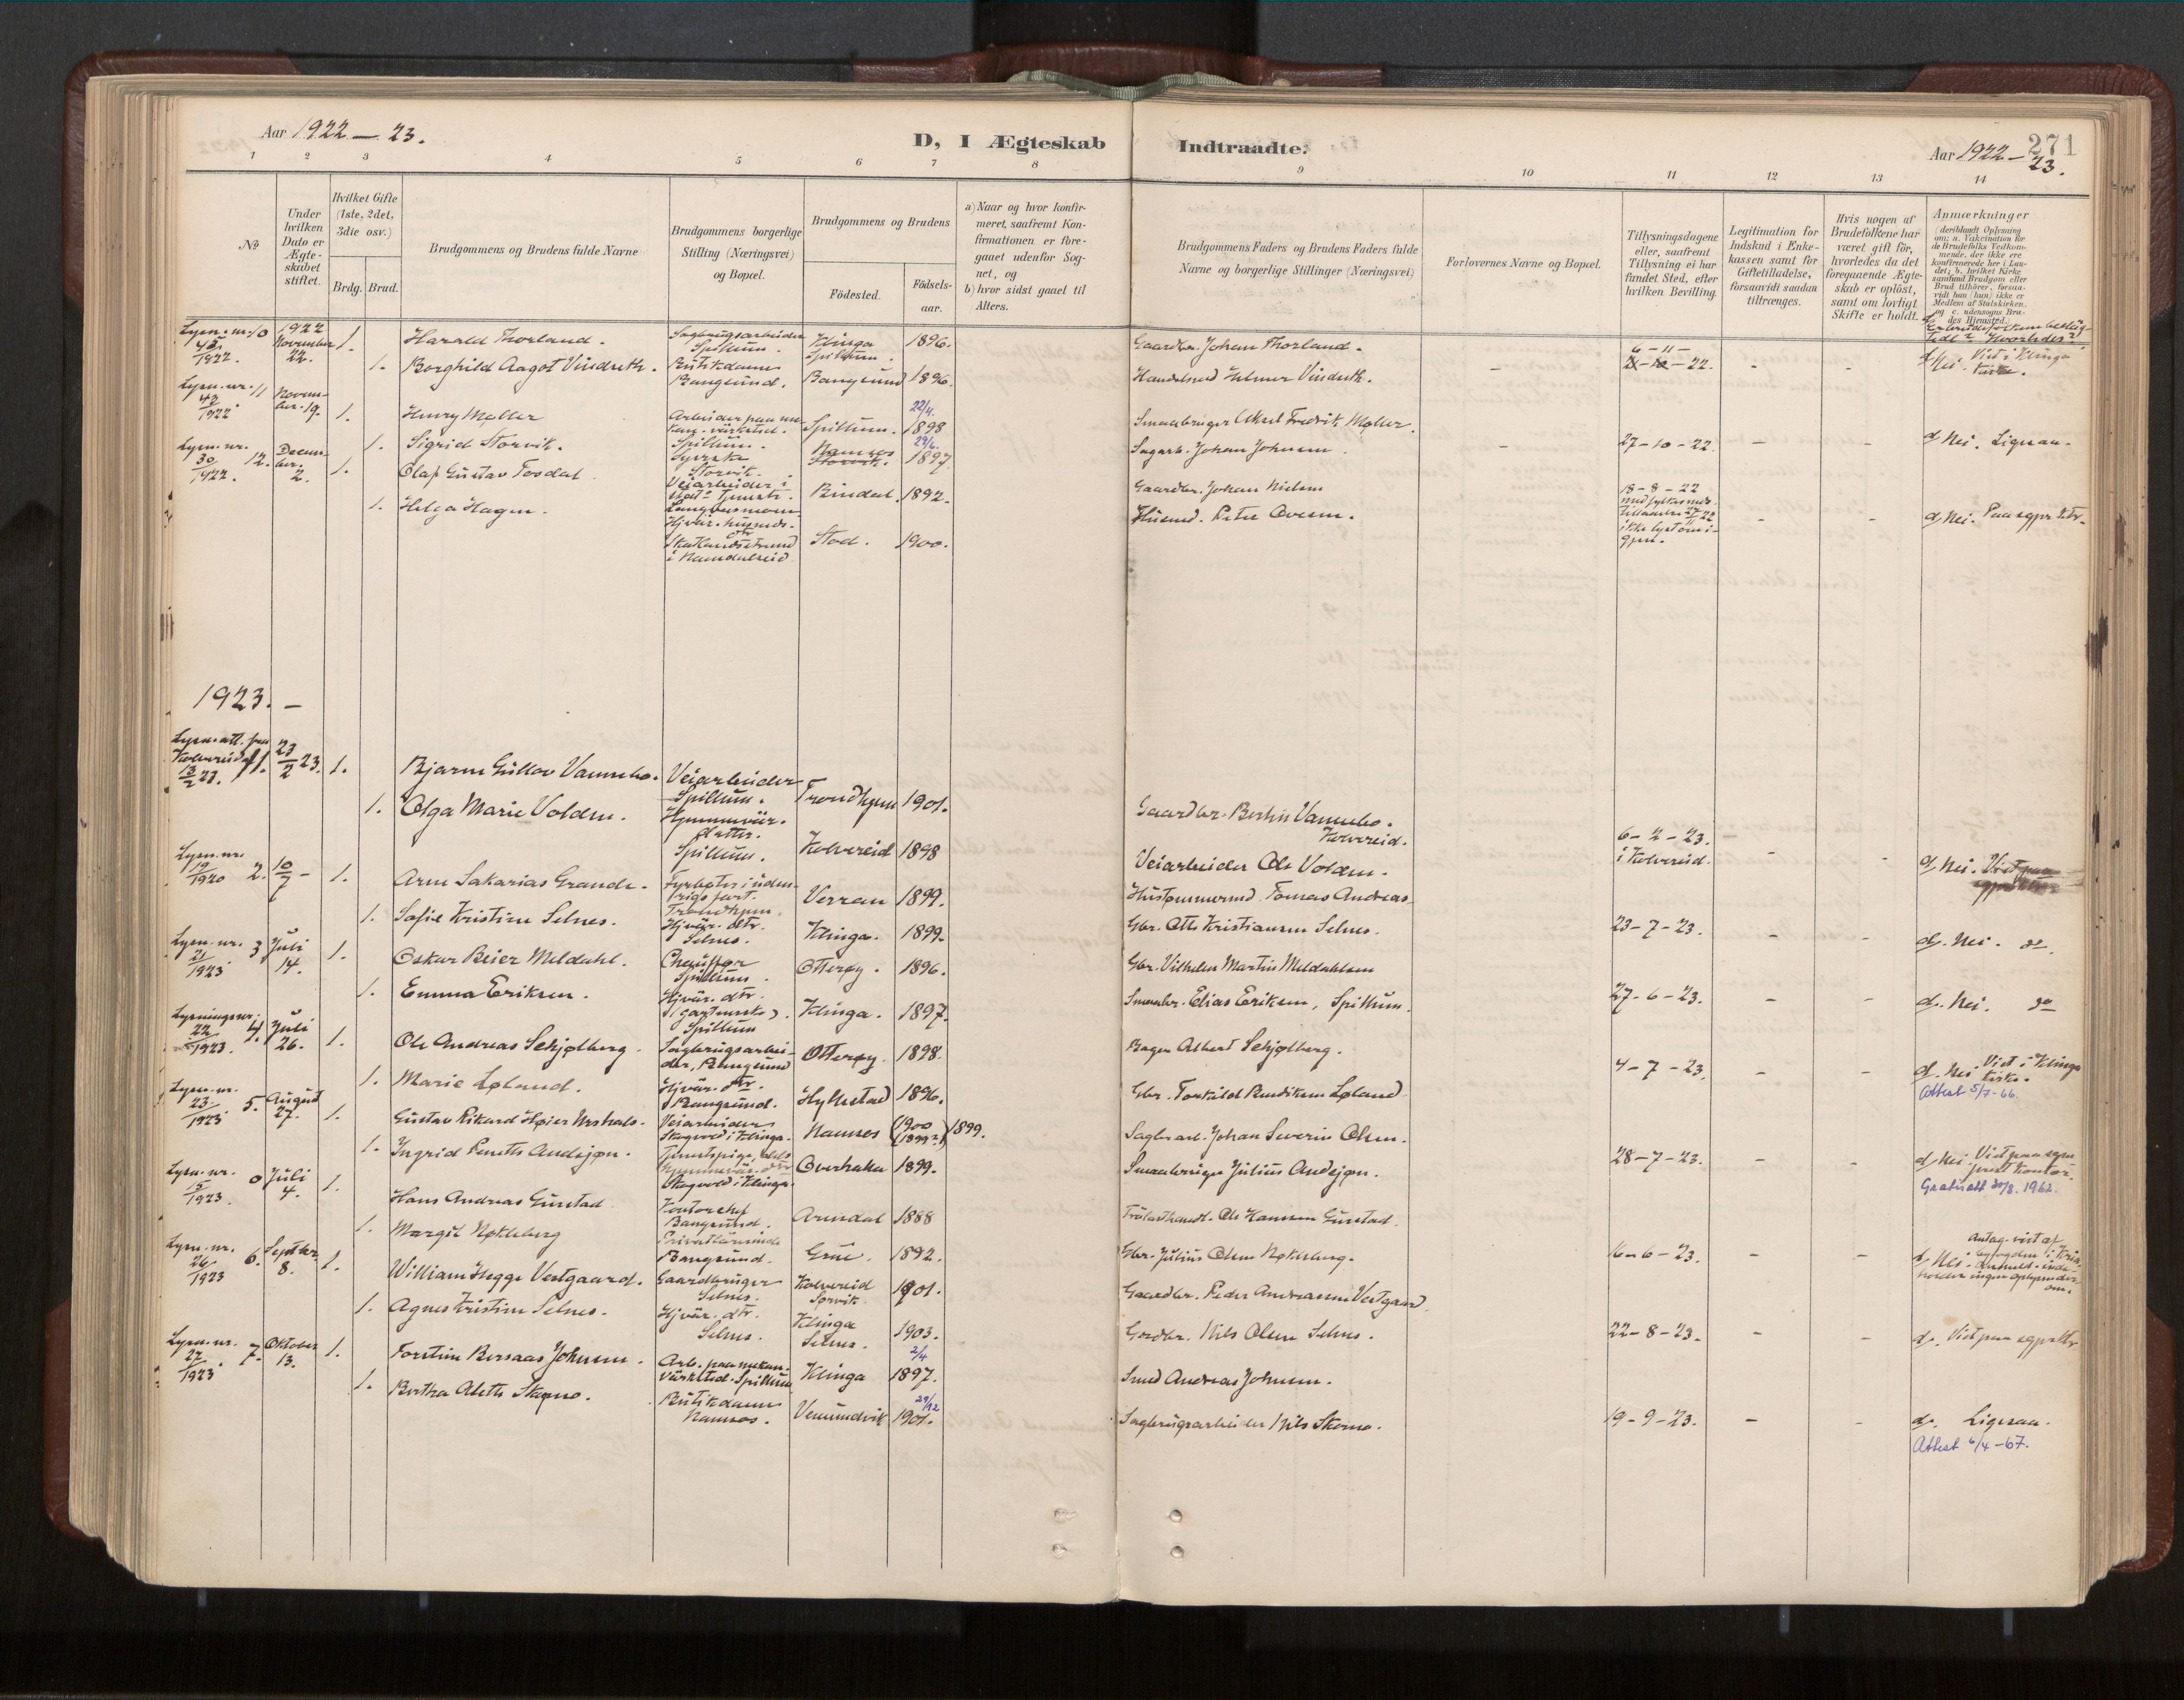 Aar 1922 — 23.
D, I Ægteskab Indtraadte.
Aar 1922 — 23.
271
1 2 3 4 5 6 7 8 9 10 11 12 13 14
No
Under hvilken Dato er Ægteskabet stiftet.
Hvilket Gifte (1ste, 2det, 3die osv.)
Brdg. Brud.
Brudgommens og Brudens fulde Navne
Brudgommens borgerlige Stilling (Næringsvei) og Bopæl.
Brudgommens og Brudens
Fødested.
Fødsels-aar.
a) Naar og hvor konfirmeret, saafremt Konfirmationen er foregaaet udenfor Sognet, og
b) hvor sidst gaaet til Alters.
Brudgommens Faders og Brudens Faders fulde Navne og borgerlige Stillinger (Næringsvei)
Forlovernes Navne og Bopæl.
Tillysningsdagene eller, saafremt Tillysning ei har fundet Sted, efter hvilken Bevilling.
Legitimation for Indskud i Enkekassen samt for Giftetilladelse, forsaavidt saadan tiltrænges.
Hvis nogen af Brudefolkene har været gift før, hvorledes da det foregaaende Ægteskab er opløst, samt om lovligt Skifte er holdt.
Anmærkninger (deriblandt Oplysning om: a. Vakcination for de Brudefolks Vedkommende, der ikke ere konfirmerede her i Landet; b. hvilket Kirkesamfund Brudgom eller Brud tilhører, forsaavidt han (hun) ikke er Medlem af Statskirken, og c. udensogns Brudes Hjemsted.)
Lysn. nr. 43/1922. 10 1922 November 22. 1. Harald Thorland. Sagbrugsarbeider Spillum. Klinga Spillum. 1896. Gaardbr. Johan Thorland.
1. Borghild Aagot Vindseth. Butikdame Bangsund. Bangsund 1896. Handelsmd Helmer Vindseth. – 6-11-22. - - d. Nei. Viet i Klinga Kirke.
Lysn. nr. 42/1922 11 November 19. 1. Henry Møller Arbeider paa mekan. værksted. Spillum. Spillum. 22/4. 1898 Smaabruger Aksel Fredrik Møller.
1. Sigrid Storvik. Syerske Storvik. Namsos 29/6. 1897 Sagarb. Johan Johnsen – 27-10-22. – – d. Nei. Ligesaa.
Lysn. nr. 30/1922. 12. December 2. 1. Olaf Gustav Tosdal Veiarbeider i Bindal. 1892. Gaardbr. Johan Nielsen
1. Helga Hagen. Stod. 1900. Husmd. Peter Ovesen. 18-8-22 – – d. Nei. Paa sgpr. ktr.
1923. –
Lysn. att. fra Kolvereid 13/2 23. 1. 23/2 23. 1. Bjarne Gullov Vannebo. Veiarbeider Spillum. Trondhjem 1901. Gaardbr. Bertin Vannebo. Kolvereid.
1. Olga Marie Volden. Hjemmevær. datter. Spillum. Kolvereid 1898 Veiarbeider Ole Volden. 6-2-23. i Kolvereid. – – d. Nei. Viet paa
Lysn. nr. 19/1920 2. 10/7 – 1. Arne Sakarias Grande. Fyrbøter i udenrigsfart. Trondhjem. Verran 1899. Hustømmermd Tomas Andreas
1. Sofie Kristine Selnes. Hjvær. dtr. Selnes. Klinga. 1899. Gbr. Otto Kristiansen Selnes. 23-7-23. – – d. Nei. do.
Lysn. nr. 21/1923 3 Juli 14. 1. Oskar Beier Meldahl. Chauffør Spillum. Otterøy. 1896. Gbr. Vilhelm Martin Meldahlsen
1. Emma Eriksen. Hjvær. dtr. Spillum Klinga. 1897. Smaabr. Elias Eriksen, Spillum. 27-6-23. – – d. Nei. do
Lysningsnr. 22/1923. 4. Juli 26. 1. Ole Andreas Schjølberg. Sagbrugsarbeider, Bangsund Otterøy. 1898. Bager Albert Schjølberg.
1. Marie Løland. Hjvær. dtr. Bangsund. Hyllestad 1896. Gbr. Torkild Bendiksen Løland 4-7-23. – – d. Nei Viet i Klinga Kirke. Attest 5/7-66.
Lysn. nr. 23/1923. 5. August 27. 1. Gustav Rikard Høier Veiarbeider Skogvold i Klinga. Namsos (1900 (1899?) 1899. Sagbr. arb. Johan Severin Olsen.
1. Ingrid Andsjøn. Skogvold i Klinga. Overhalla 1899. Smaabruger Julius Andsjøn. 28-7-23. – – d. Nei. Viet paa sogneprest kontor. Gratisatt 20/8. 1962.
Lysn. nr. 15/1923. 0 Juli 4. 1. Hans Andreas Gunstad Kontorchef Bangsund. Arendal 1888 Trælasthandl. Ole Hansen Gunstad.
1. Margit Nøkleberg Privatlærerinde Bangsund. Grue. 1892. Gbr. Julius Olsen Nøkleberg. 16-6-23. – – d. Nei.
Lysn. nr. 26/1923 6. Septbr. 8. 1. William Hegge Vestgaard. Gaardbruger Selnes. Kolvereid Sørvik. 1901. Gaardbr. Peder Andreassen Vestgaard.
1. Agnes Kristine Selnes. Hjvær. dtr. Selnes. Klinga Selnes. 1903. Gaardbr. Nils Olsen Selnes. 22-8-23. – – d. Viet paa sgprktr
Lysn. nr. 27/1923. 7. Oktober 13. 1. Torstein Bersaas Johnsen. Arb. paa mekan. værksted. Spillum Klinga 2/4 1897. Smed Andreas Johnsen.
1. Bertha Alette Skomo. Butikdame Namsos. Vemundvik 29/12 1901. Sagbrugsarbeider Nils Skomo. 19-9-23. – – d. Ligesaa. Attest 6/4-67.